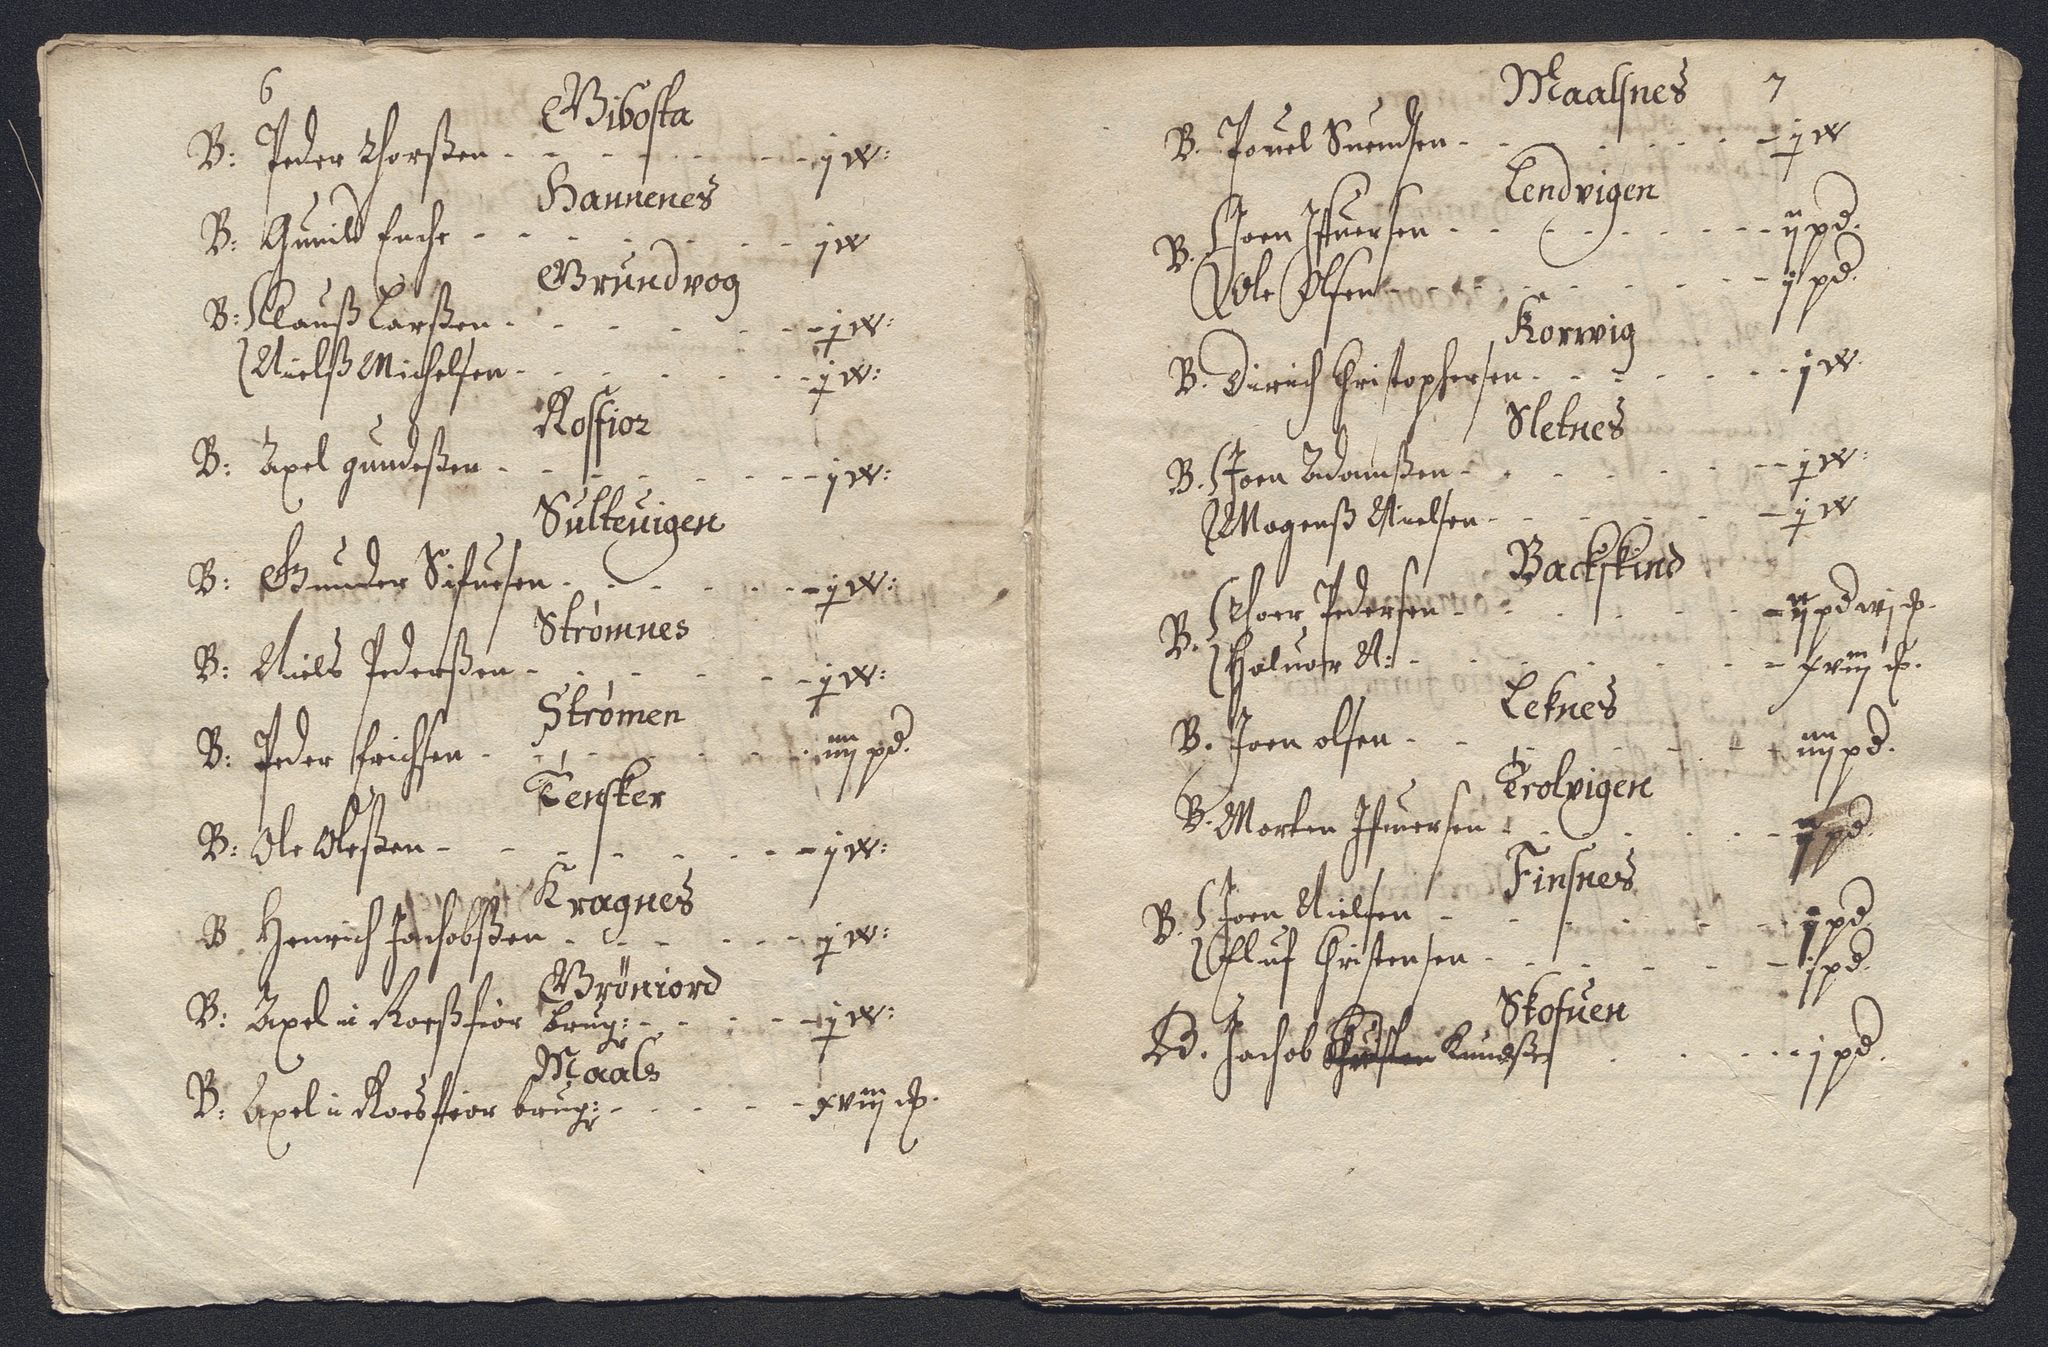 6
Gibosta
B: Peder Thorßen - - - - - - - j w:
Hannenes
B: Gunild Enche - - - - - - j w
Grundvog
B: Klauß Larßen - - - - - - j w:
Nielß Michelsen - - - - - - j w:
Rossior
B: Axel gundeßen - - - - - - j w:
Sulteuigen
B: Gunder Sifuersen - - - - - j w:
Strømnes
B: Niels Pederßen - - - - - - j w:
Strømen
B: Peder Erichsen - - - - - - iiij pd.
Tensker
B: Ole Oleßen - - - - - - - j w:
Kragnes
B Henrich Jachobßen - - - - - j w:
Grøniord
B: Axel i Roeßfior brug: - - - - j w:
Maals
B: Axel i Roesfior brug: - - - - xviij
Maalsnes 7
B. Pouel Suendsen - - - - - - j w
Lendvigen
B. Joen Ifuersen - - - - - - ij pd.
Ole Olsen - - - - - - - j pd.
Korvvig
B. Dirich Christophersen - - - - - j w.
Sletnes
B. Joen Adamßen - - - - - - j w:
Mogenß Nielsen - - - - - - j w
Backskind
B. Thoer Pedersen - - - - - - ij pd vj
Haluor N: - - - - - - - xviij
Leknes
B. Joen olsen - - - - - - - iiij pd.
Trolvigen
B. Morten Ifuersen - - - - - - ij pd.
Finsnes
B. Joen Nielsen - - - - - - j pd
Oluf Christensen - - - - - - j pd.
Skofuen
Jachob Knudßen - - - - j pd.